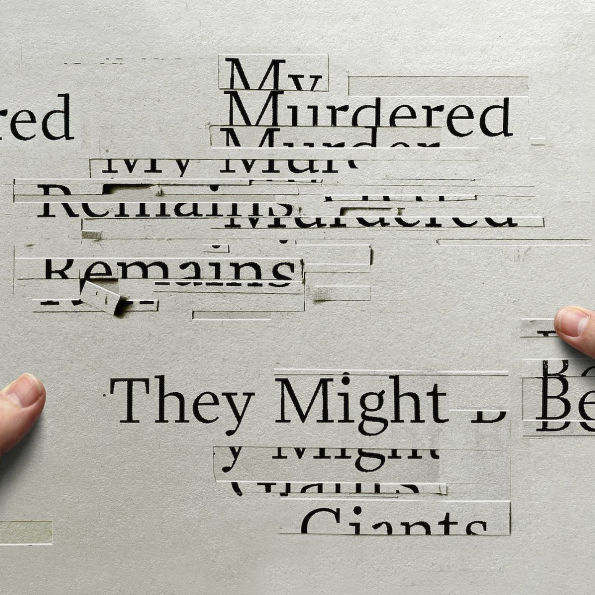 My
red Murdered
Murder
My Mur
Remains Murdered
Remains
They Might B Be
y Might
Giants
Giants